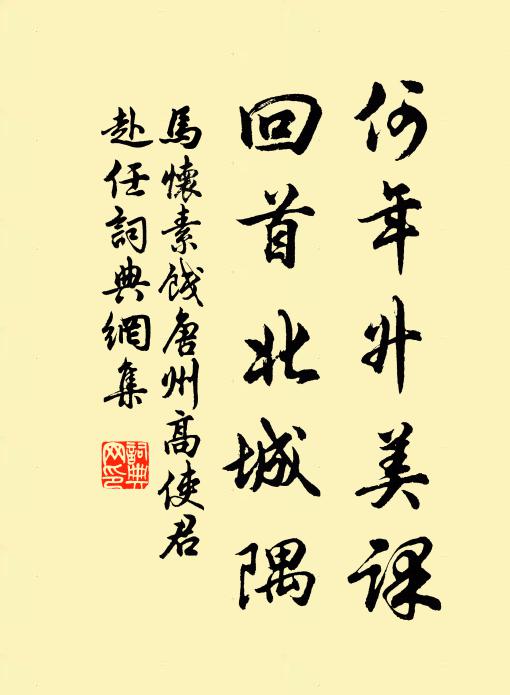 何年升美课
回首北城隅
馬懷素餞唐州高使君
赴任詞典網集
詞典
网印